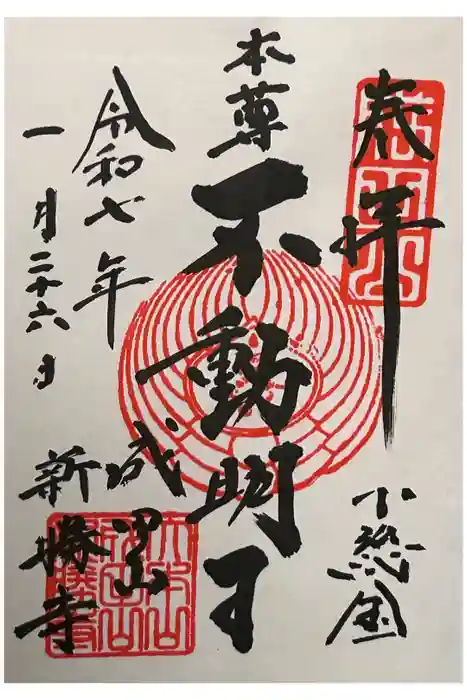 奉拝
本尊
不動明王
令和七年
一月二十六日
成田山
新勝寺